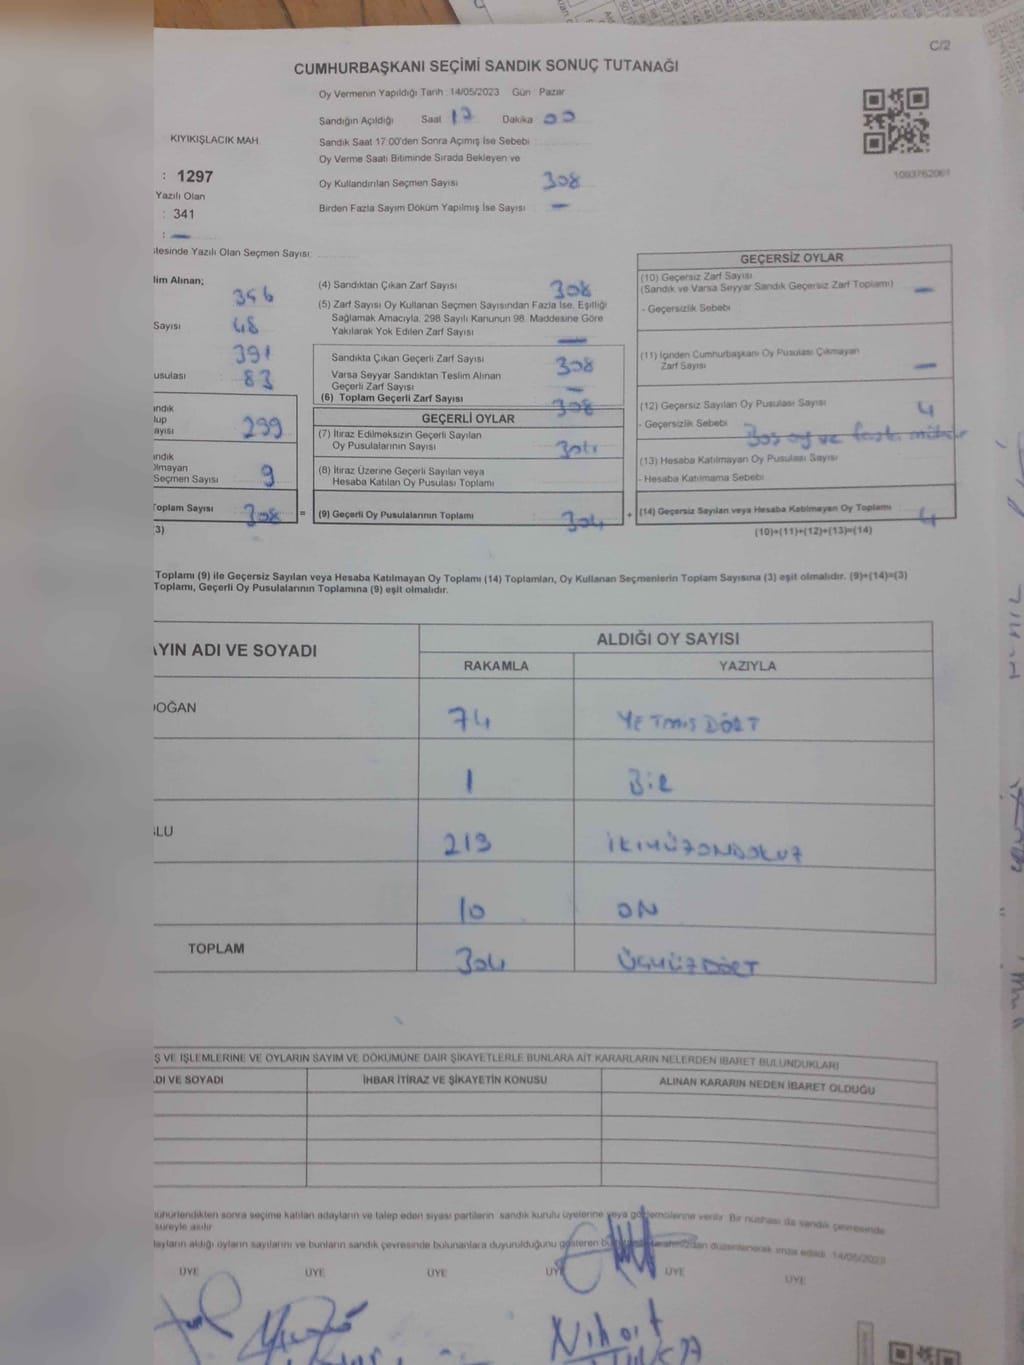 C/2
CUMHURBAŞKANI SEÇİMİ SANDIK SONUÇ TUTANAĞI
Oy Vermenin Yapıldığı Tarih : 14/05/2023 Gün : Pazar
Sandığın Açıldığı Saat 17 Dakika 00
KIYIKIŞLACIK MAH.
Sandık Saat 17:00'den Sonra Açımış İse Sebebi :
Oy Verme Saati Bitiminde Sırada Bekleyen ve
Oy Kullandırılan Seçmen Sayısı 308
1093762061
: 1297
Yazılı Olan
: 341
Birden Fazla Sayım Döküm Yapılmış İse Sayısı : —
: —
Yazılı Olan Seçmen Sayısı:
lim Alınan;
346
Sayısı 48
391
usulası : 83
ndık
lup
ayısı 299
ndık
lmayan
Seçmen Sayısı 9
Toplam Sayısı 308 =
3)
(4) Sandıktan Çıkan Zarf Sayısı 308
(5) Zarf Sayısı Oy Kullanan Seçmen Sayısından Fazla İse, Eşitliği
Sağlamak Amacıyla, 298 Sayılı Kanunun 98. Maddesine Göre
Yakılarak Yok Edilen Zarf Sayısı —
Sandıkta Çıkan Geçerli Zarf Sayısı 308
Varsa Seyyar Sandıktan Teslim Alınan
Geçerli Zarf Sayısı —
(6) Toplam Geçerli Zarf Sayısı 308
GEÇERLİ OYLAR
(7) İtiraz Edilmeksizin Geçerli Sayılan
Oy Pusulalarının Sayısı 304
(8) İtiraz Üzerine Geçerli Sayılan veya
Hesaba Katılan Oy Pusulası Toplamı
(9) Geçerli Oy Pusulalarının Toplamı 304 +
GEÇERSİZ OYLAR
(10) Geçersiz Zarf Sayısı
(Sandık ve Varsa Seyyar Sandık Geçersiz Zarf Toplamı) —
- Geçersizlik Sebebi
(11) İçinden Cumhurbaşkanı Oy Pusulası Çıkmayan
Zarf Sayısı —
(12) Geçersiz Sayılan Oy Pusulası Sayısı 4
- Geçersizlik Sebebi Boş oy ve fazla mühür
(13) Hesaba Katılmayan Oy Pusulası Sayısı
- Hesaba Katılmama Sebebi
(14) Geçersiz Sayılan veya Hesaba Katılmayan Oy Toplamı 4
(10)+(11)+(12)+(13)=(14)
Toplamı (9) ile Geçersiz Sayılan veya Hesaba Katılmayan Oy Toplamı (14) Toplamları, Oy Kullanan Seçmenlerin Toplam Sayısına (3) eşit olmalıdır. (9)+(14)=(3)
Toplamı, Geçerli Oy Pusulalarının Toplamına (9) eşit olmalıdır.
AYIN ADI VE SOYADI ALDIĞI OY SAYISI
RAKAMLA YAZIYLA
DOĞAN 74 YETMİŞ DÖRT
1 BİR
LU 219 İKİYÜZONDOKUZ
10 ON
TOPLAM 304 ÜÇYÜZDÖRT
Ş VE İŞLEMLERİNE VE OYLARIN SAYIM VE DÖKÜMÜNE DAİR ŞİKAYETLERLE BUNLARA AİT KARARLARIN NELERDEN İBARET BULUNDUKLARI
DI VE SOYADI İHBAR İTİRAZ VE ŞİKAYETİN KONUSU ALINAN KARARIN NEDEN İBARET OLDUĞU
mühürlendikten sonra seçime katılan adayların ve talep eden siyasi partilerin sandık kurulu üyelerine veya gözlemcilerine verilir. Bir nüshası da sandık çevresinde
süreyle asılır.
layların aldığı oyların sayılarını ve bunların sandık çevresinde bulunanlara duyurulduğunu gösteren düzenlenerek imza edildi. 14/05/2023
ÜYE ÜYE ÜYE ÜYE ÜYE ÜYE
Nihat